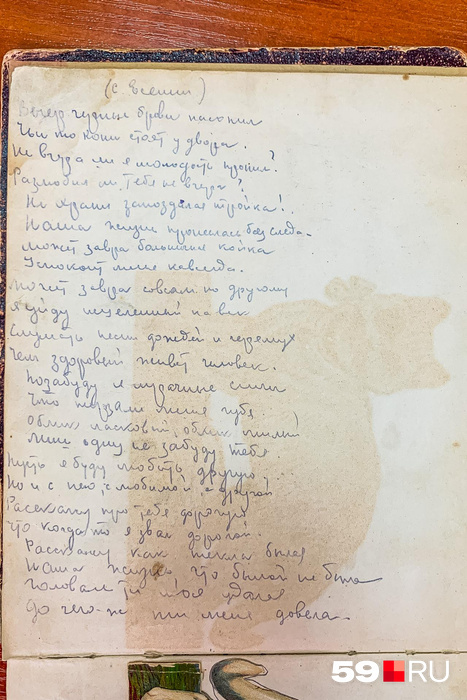 (С. Есенин)
Вечер чудные брови насопил
Чьи то кони стоят у двора.
Не вчера ли я молодость пропил?
Разлюбил ли тебя не вчера?
Не храпи запоздалая тройка!
Наша жизнь пронеслась без следа.
может завтра больничная койка
Успокоит меня навсегда.
Может завтра совсем по другому
Я уйду исцеленный навек
Слушать песни дождей и черемух
Чем здоровый живёт человек.
Позабуду я мрачные силы
Что терзали меня губя.
Облик ласковый, облик милый
Лишь одну не забуду тебя
Пусть я буду любить другую
Но и с нею, с любимой, с другой
Расскажу про тебя дорогую
Что когда то я звал дорогой.
Расскажу как текла былая
Наша жизнь что былой не была
Голова ль ты моя удалая
До чего-ж ты меня довела.
59.RU